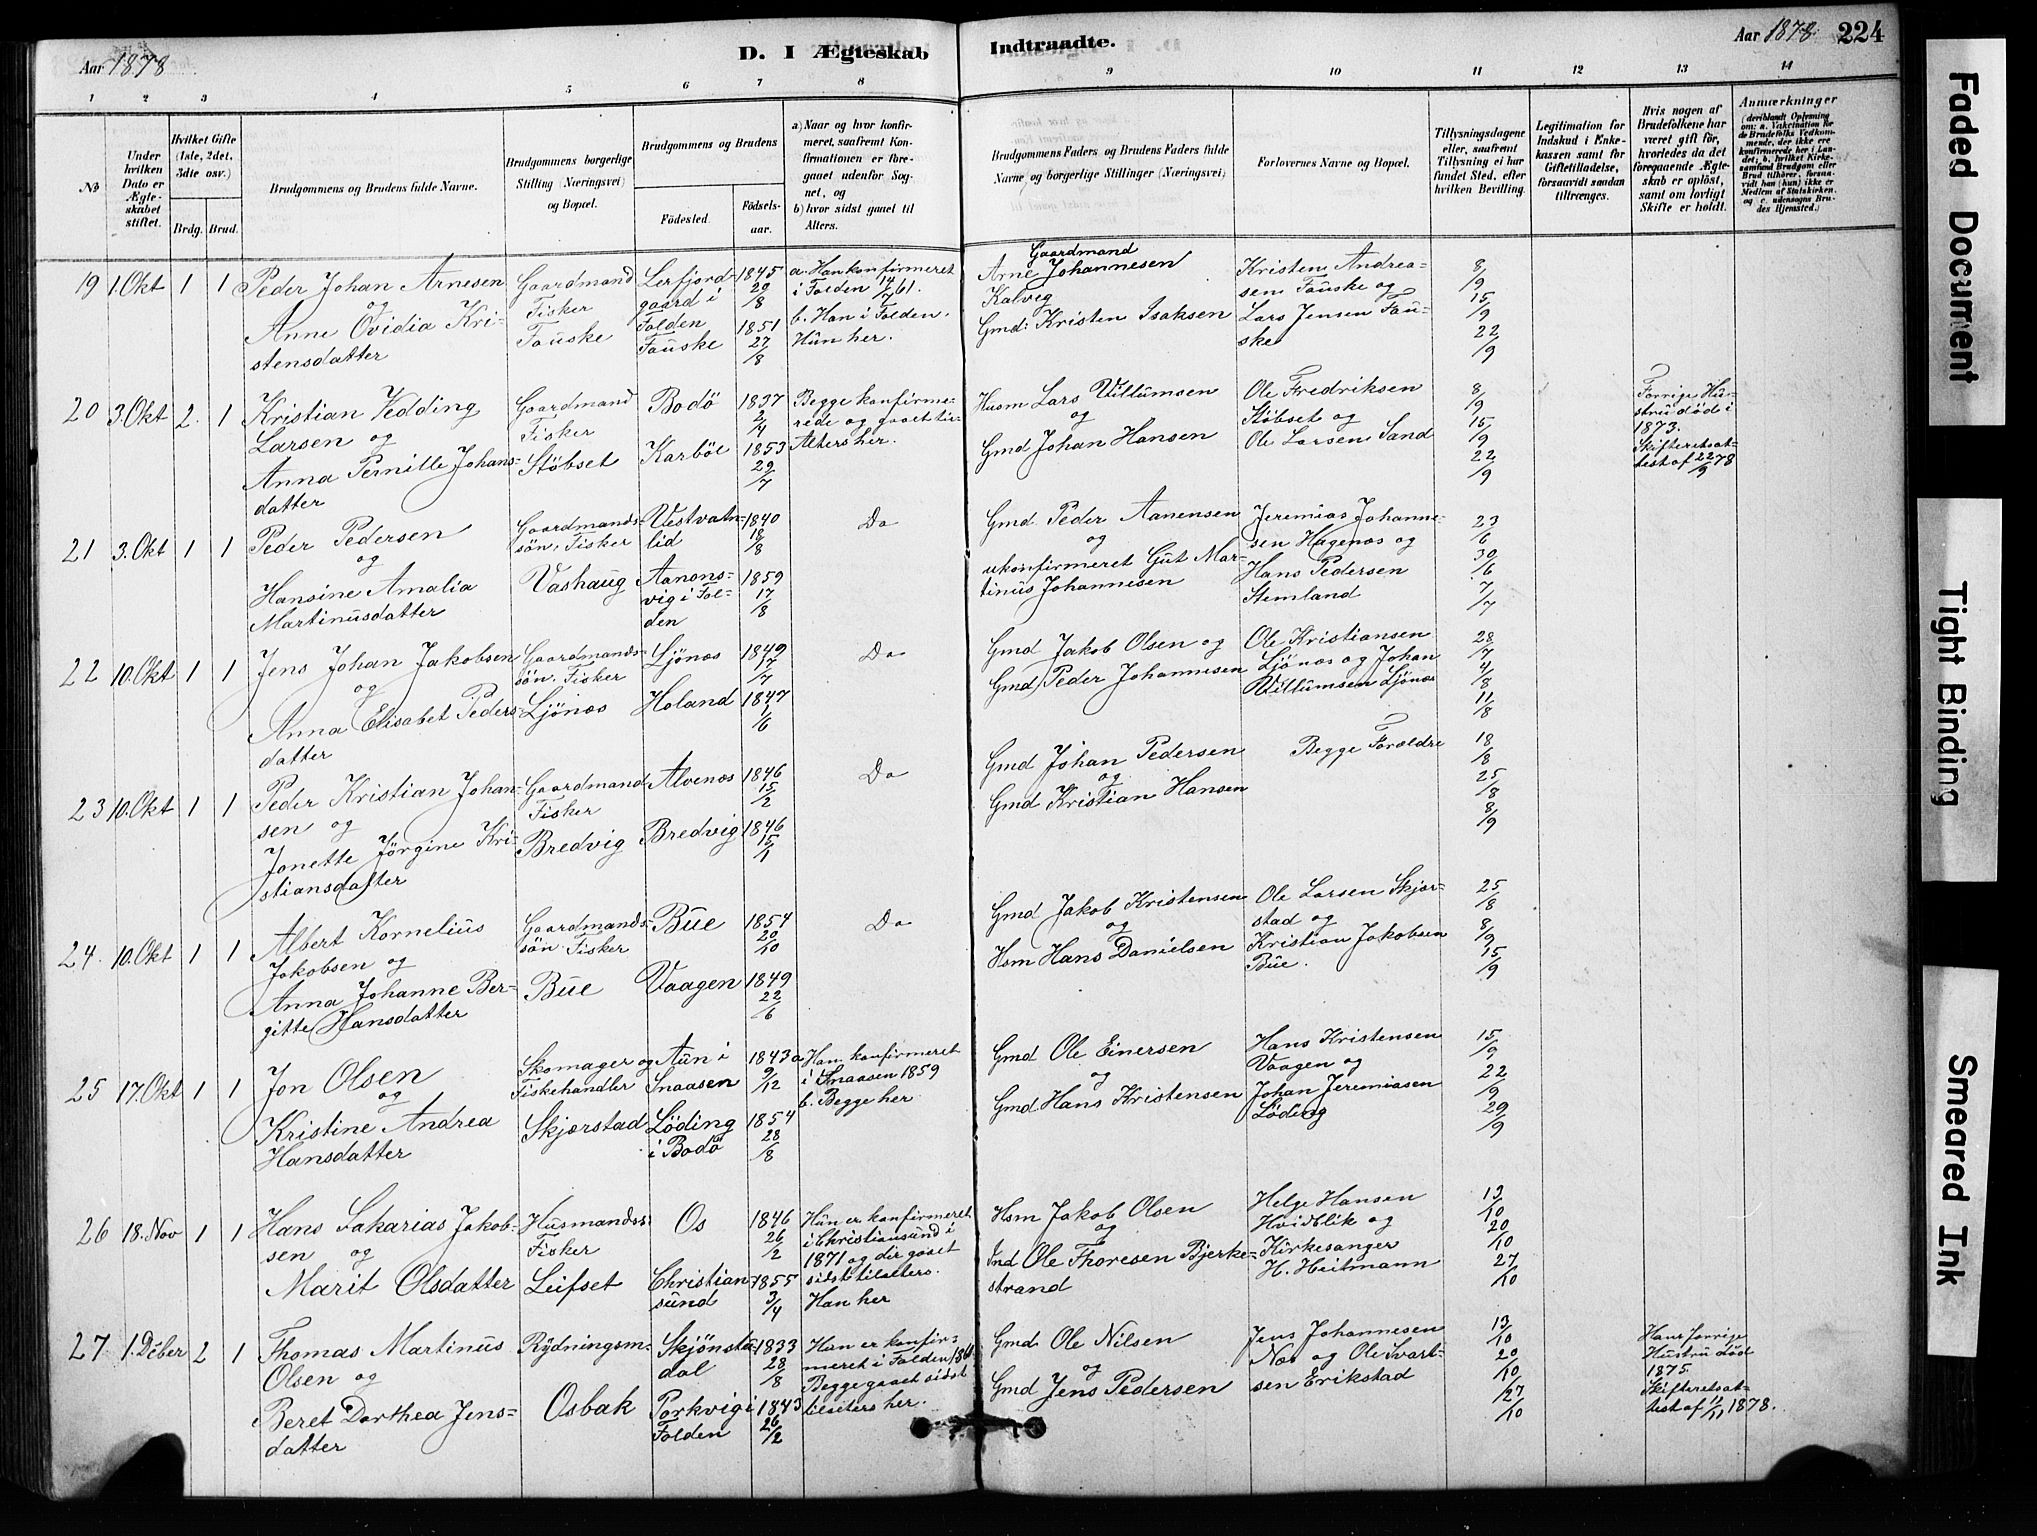 Aar 1878.
D. I Ægteskab
Indtraadte.
Aar 1878. 224
1 2 3 4 5 6 7 8 9 10 11 12 13 14
No
Under hvilken Dato er Ægteskabet stiftet.
Hvilket Gifte (1ste, 2det, 3die osv.)
Brdg. Brud.
Brudgommens og Brudens fulde Navne.
Brudgommens borgerlige Stilling (Næringsvei) og Bopæl.
Brudgommens og Brudens
Fødested. Fødselsaar.
a) Naar og hvor konfirmeret, saafremt Konfirmationen er foregaaet udenfor Sognet, og
b) hvor sidst gaaet til Alters.
Brudgommens Faders og Brudens Faders fulde Navne og borgerlige Stillinger (Næringsvei)
Forlovernes Navne og Bopæl.
Tillysningsdagene eller, saafremt Tillysning ei har fundet Sted, efter hvilken Bevilling.
Legitimation for Indskud i Enkekassen samt for Giftetilladelse, forsaavidt saadan tiltrænges.
Hvis nogen af Brudefolkene har været gift før, hvorledes da det foregaaende Ægteskab er opløst, samt om lovligt Skifte er holdt.
Anmærkninger (deriblandt Oplysning om: a. Vakcination for de Brudefolks Vedkommende, der ikke ere konfirmerede her i Landet; b. hvilket Kirkesamfund Brudgom eller Brud tilhører, forsaavidt han (hun) ikke er Medlem af Statskirken og c. udensogns Brudes Hjemsted.)
19 1. Okt 1 1 Peder Johan Arnesen
og
Anne Ovidia Kristensdatter
Gaardmand
Fisker
Fauske
Lerfjordgaard i
Folden
Fauske
1845 29/8
1851 27/8
a. Han konfirmeret
i Folden 14/7 61.
b. Han i Folden.
Hun her.
Gaardmand
Arne Johannesen
Kalvig
Gmd: Kristen Isaksen
Kristen Andreasen Fauske og
Lars Jensen Fauske
8/9
15/9
22/9
20 3. Okt 2. 1 Kristian Vedding
Larsen og
Anna Pernille Johansdatter
Gaardmand
Fisker
Støbset
Bodö
Karböl
1837 2/4
1853 29/7
Begge konfirmerede og gaaet til
Alters her.
Husm Lars Villumsen
og
Gmd Johan Hansen
Ole Fredriksen
Støbset og
Ole Larsen Sand
8/9
15/9
22/9
Forrige Hustru död i
1873.
Skifteretsattest af 22/9 78
21 3. Okt 1 1 Peder Pedersen
og
Hansine Amalia
Martinusdatter
Gaardmandssön. Fisker
Vashaug
Vestvatnlid
Aanonsvig i Folden
1840 18/8
1859 17/8
Do
Gmd Peder Aanensen
og
ukonfirmeret Gut Martinus Johannesen
Jeremias Johannesen Hagenæs og
Hans Pedersen
Stemland
23/6
30/6
7/7
22 10. Okt 1 1 Jens Johan Jakobsen
og
Anna Elisabet Pedersdatter
Gaardmandssön. Fisker
Ljönæs
Ljönæs
Holand
1849 17/7
1847 1/6
Do
Gmd Jakob Olsen og
Gmd Peder Johannesen
Ole Kristiansen
Ljönæs og Johan
Villumsen Ljönæs
28/7
4/8
11/8
23 10. Okt 1 1 Peder Kristian Johansen og
Jonette Jørgine Kristiansdatter
Gaardmand
Fisker
Bredvig
Alvenæs
Bredvig
1846 15/2
1846 15/1
Do
Gmd Johan Pedersen
og
Gmd Kristian Hansen
Begge Forældre
18/8
25/8
8/9
24. 10. Okt 1 1 Albert Kornelius
Jakobsen og
Anna Johanne Bergitte Hansdatter
Gaardmandssön. Fisker
Bue
Bue
Vaagen
1854 20/10
1849 22/6
Do
Gmd Jakob Kristensen
og
Hsm Hans Danielsen
Ole Larsen Skjærstad og
Kristian Jakobsen
Bue.
25/8
8/9
15/9
25 17. Okt 1 1 Jon Olsen
og
Kristine Andrea
Hansdatter
Skomager og
Fiskehandler
Skjærstad
Aun i
Snaasen
Löding
i Bodö
1843 9/12
1854 28/8
a. Han konfirmeret
i Snaasen 1859
b. Begge her
Gmd Ole Einersen
og
Gmd Hans Kristensen
Hans Kristensen
Vaagen og
Johan Jeremiasen
Löding
15/9
22/9
29/9
26 18. Nov 1 1 Hans Sakarias Jakobsen og
Marit Olsdatter
Husmandss.
Fisker
Leifset
Os
Christiansund
1846 26/2
1855 3/4
Hun er konfirmeret
i Christiansund i
1871 og der gaaet
sidst til alters.
Han her
Hsm Jakob Olsen
og
Ind Ole Thoresen Bjerkestrand
Helge Hansen
Hvidblik og
Kirkesanger
H. Heitmann
13/10
20/10
27/10
27 1. Dcber 2 1 Thomas Martinus
Olsen og
Beret Dorthea Jensdatter
Rydningsm.
Osbak
Skjönstadal
Porkvig i
Folden
1833 28/8
1843 26/2
Han er konfirmeret i Folden
Begge gaaet sidst
til alters her.
Gmd Ole Nilsen
og
Gmd Jens Pedersen
Jens Johannesen
Næs og Ole Svartsen Erikstad
13/10
20/10
27/10
Hans forrige
Hustru död
1875
Skifteretsattest af 1/11 1878.
Faded Document
Tight Binding
Smeared Ink